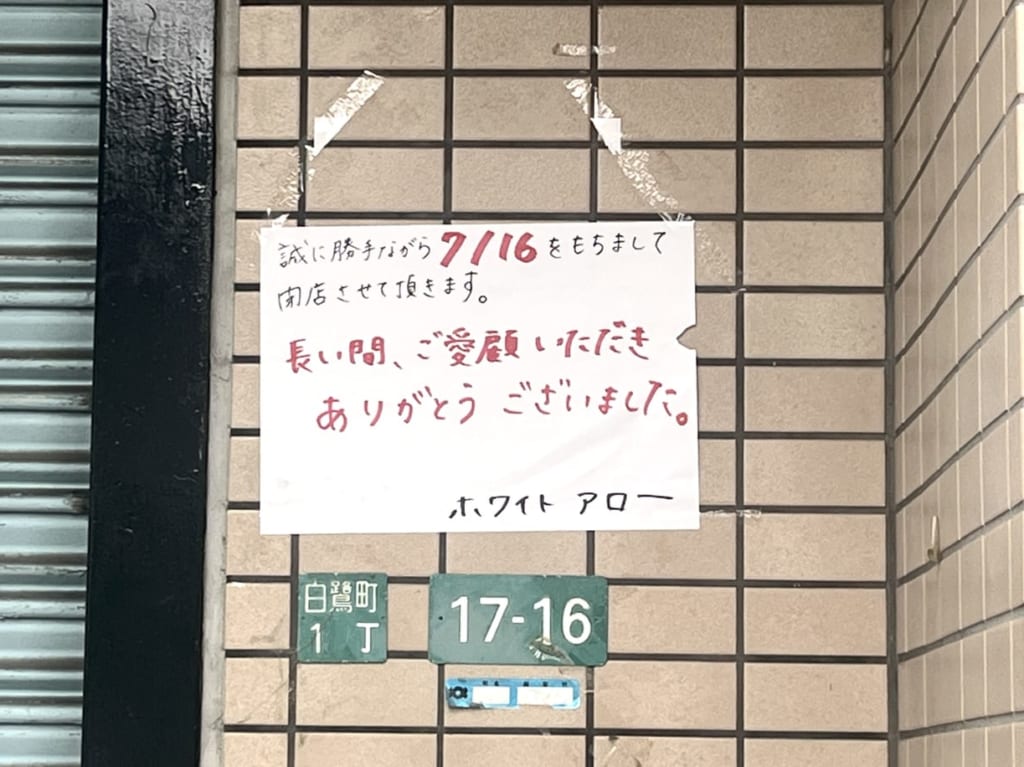 誠に勝手ながら7/16をもちまして
閉店させて頂きます。
長い間、ご愛顧いただき
ありがとうございました。
ホワイト アロー
白鷺町
1丁
17-16